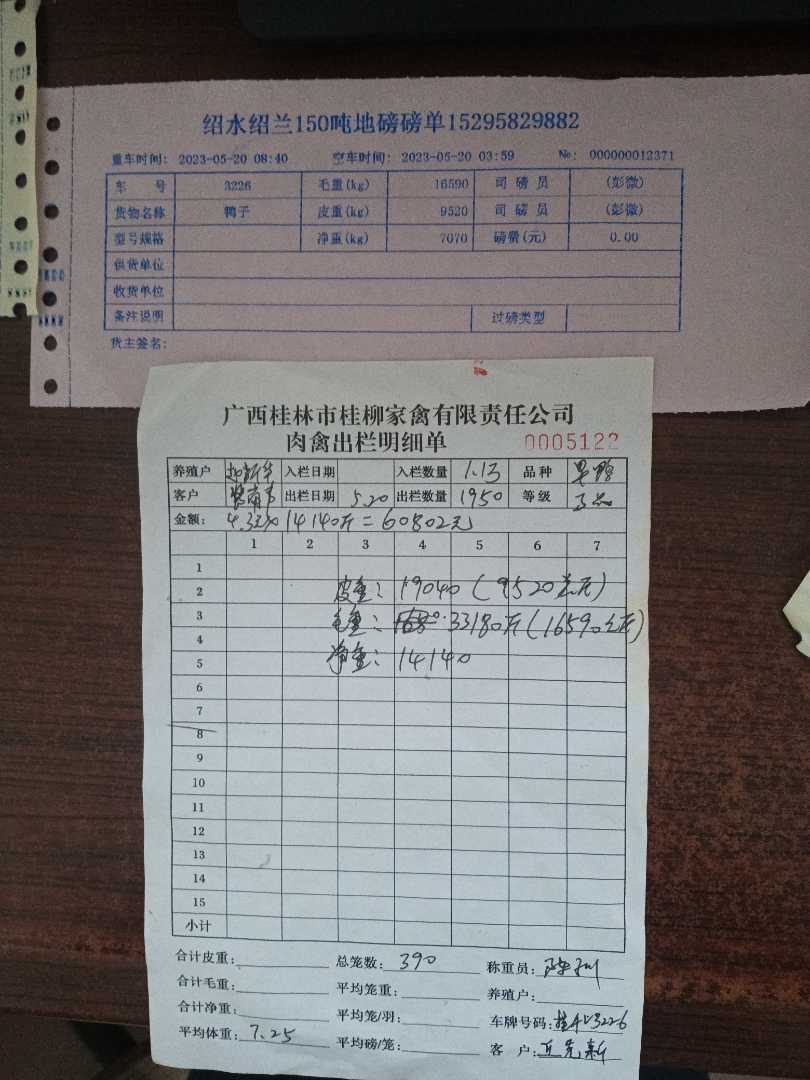 绍水绍兰150吨地磅磅单15295829882
重车时间: 2023-05-20 08:40 空车时间: 2023-05-20 03:59 №: 000000012371
车 号 3226 毛重(kg) 16590 司 磅 员 (彭微)
货物名称 鸭子 皮重(kg) 9520 司 磅 员 (彭微)
型号规格 净重(kg) 7070 磅费(元) 0.00
供货单位
收货单位
备注说明 过磅类型
货主签名:
广西桂林市桂柳家禽有限责任公司
肉禽出栏明细单 0005122
养殖户 入栏日期 入栏数量 1.13 品种
客户 出栏日期 5.20 出栏数量 1950 等级
金额: 4.3元× 14140斤 = 60802元
1 2 3 4 5 6 7
1
2 皮重: 19040 (9520公斤)
3 毛重: 33180斤 (16590公斤)
4
5 净重: 14140
6
7
8
9
10
11
12
13
14
15
小计
合计皮重: 总笼数: 390 称重员:
合计毛重: 平均笼重: 养殖户:
合计净重: 平均笼/羽: 车牌号码: 3226
平均体重: 7.25 平均磅/笼: 客 户: